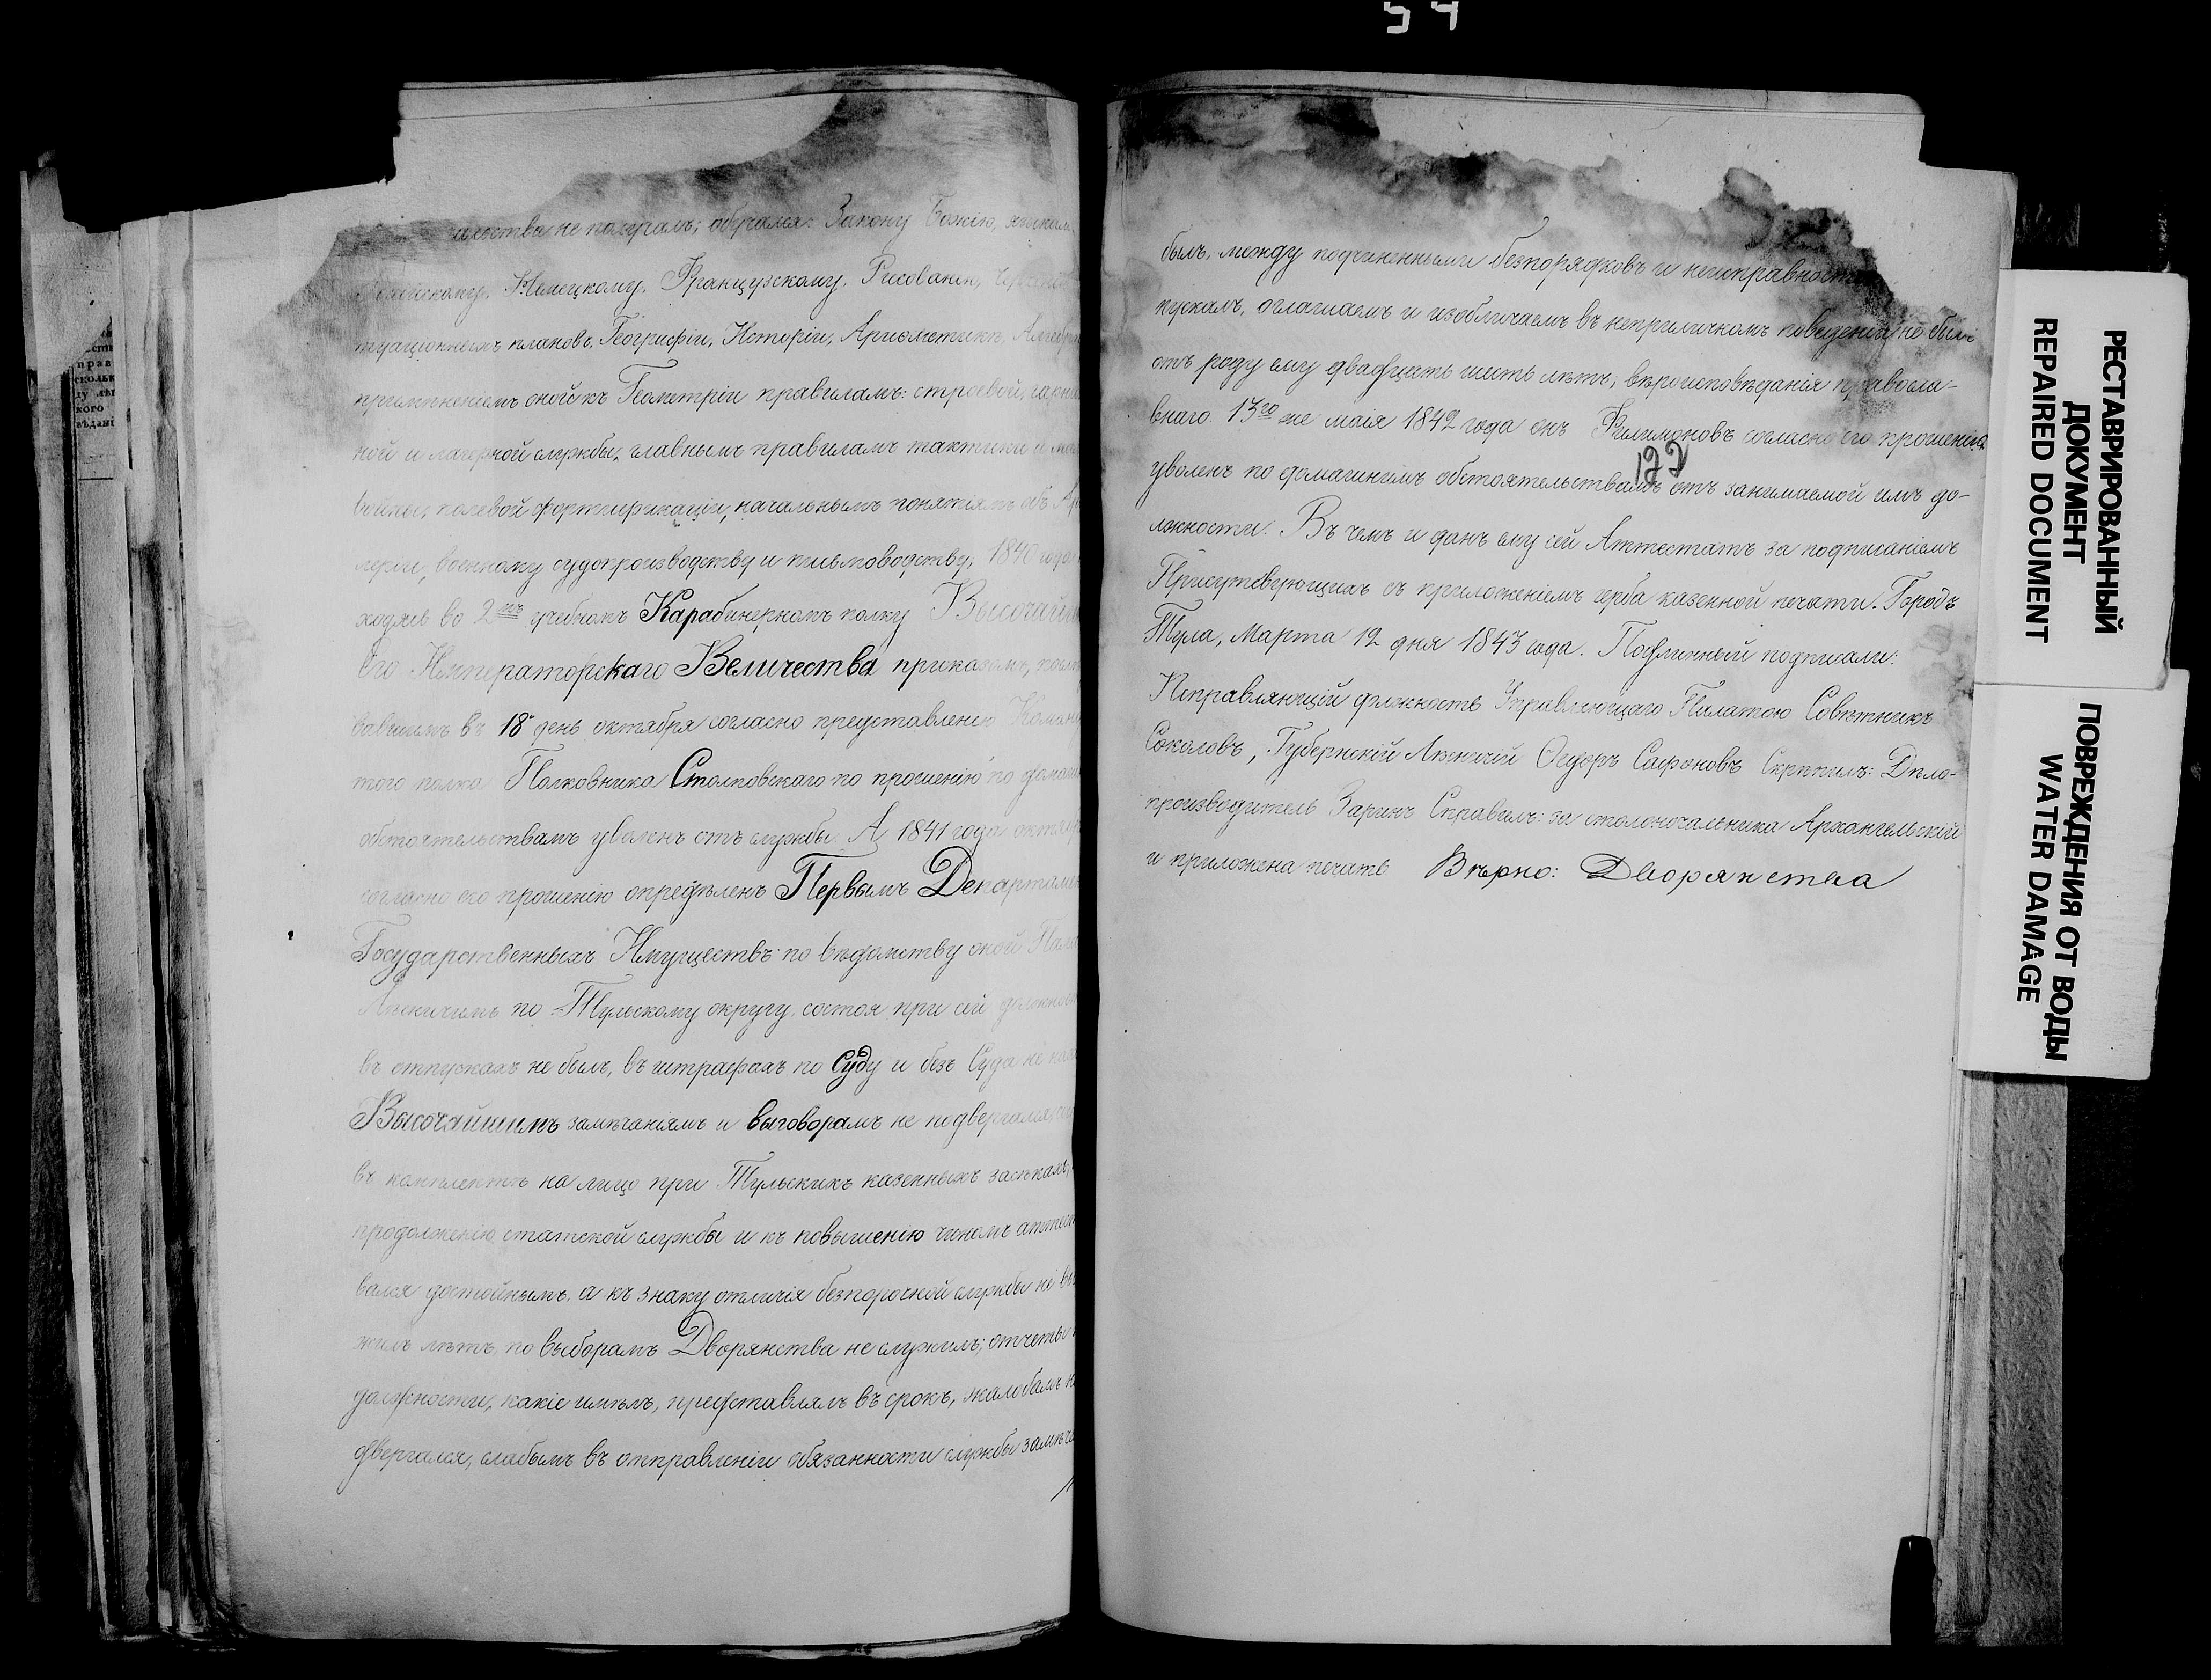 54
не получалъ; обучался: Закону Божію, языкамъ
Россійскому, Нѣмецкому, Французскому, Рисованію,
плановъ, Географіи, Исторіи, Ариѳметикѣ,
примѣненіемъ оной къ Геометріи правиламъ: строевой,
ной и лагерной службы, главнымъ правиламъ тактики и
войны, полевой фортификаціи, начальнымъ понятіямъ объ
леріи, военному судопроизводству и письмоводству, 1840 года
ходясь во 2мъ учебномъ Карабинерномъ полку
Его Императорскаго Величества приказомъ,
вавшимъ въ 18 день октября согласно представленію
того полка Полковника Столповскаго по прошенію по
обстоятельствамъ уволенъ отъ службы А 1841 года
согласно его прошенію опредѣленъ Первымъ
Государственныхъ Имуществъ по вѣдомству оной
Лѣсничимъ по Тульскому округу, состоя при сей
въ отпускахъ не былъ, въ штрафахъ по Суду и безъ Суда не
Высочайшимъ замѣчаніямъ и выговорамъ не подвергался,
въ комплектѣ на лицо при Тульскихъ казенныхъ засѣкахъ,
продолженію статской службы и къ повышенію чиномъ аттесто
вался достойнымъ, а къ знаку отличія безпорочной службы не вы
жилъ лѣтъ, по выборамъ Дворянства не служилъ; отчеты
должности, какіе имѣлъ, представлялъ въ срокъ, жалобамъ
двергался, слабымъ въ отправленіи обязанности службы
былъ, между подчиненными безпорядковъ и неисправности
пускалъ, оглашаемъ и изобличаемъ въ неприличномъ поведеніи не былъ
отъ роду ему двадцать шесть лѣтъ, вѣроисповѣданія правосла-
внаго. 13го же маія 1842 года онъ Филимоновъ согласно его прошенія
122
уволенъ по домашнимъ обстоятельствамъ отъ занимаемой имъ до-
лжности. Въ чемъ и данъ ему сей Аттестатъ за подписаніемъ
Присутствующихъ съ приложеніемъ герба казенной печати. Городъ
Тула, Марта 12 дня 1843 года. Подлинный подписали:
Исправляющій должность Управляющаго Палатою Совѣтникъ
Соколовъ, Губернскій Лѣсничій Ѳедоръ Сафоновъ Скрѣпилъ: Дѣло-
производитель Заринъ Справилъ: за столоначальника Архангельскій
и приложена печать Вѣрно: Дворянства
РЕСТАВРИРОВАННЫЙ
ДОКУМЕНТ
REPAIRED DOCUMENT
ПОВРЕЖДЕНИЯ ОТ ВОДЫ
WATER DAMAGE